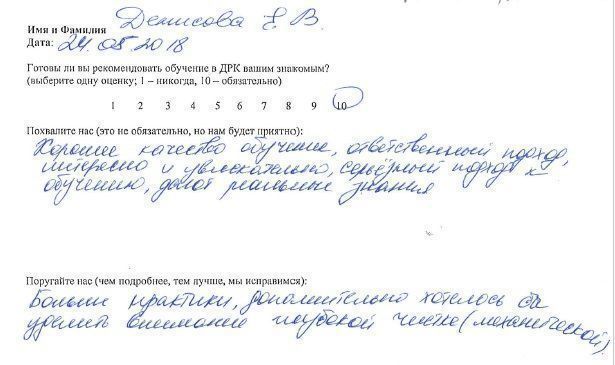 Имя и Фамилия Денисова Е. В.
Дата: 24.05.2018
Готовы ли вы рекомендовать обучение в ДРК вашим знакомым?
(выберите одну оценку; 1 – никогда, 10 – обязательно)
1 2 3 4 5 6 7 8 9 10
Похвалите нас (это не обязательно, но нам будет приятно):
Хорошее качество обучение, ответственный подход,
интересно и увлекательно, серьёзный подход к
обучению, дают реальные знания
Поругайте нас (чем подробнее, тем лучше, мы исправимся):
Больше практики, дополнительно хотелось бы
уделить внимание глубокой чистке (механической).